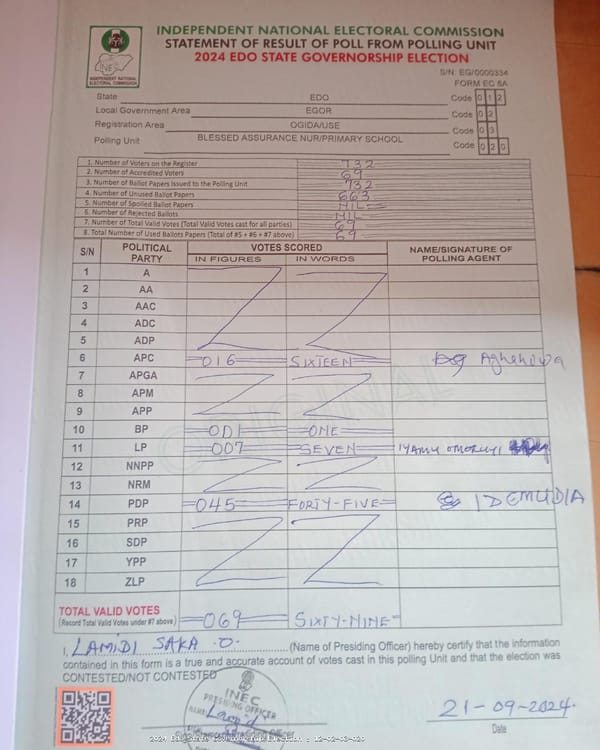 INDEPENDENT NATIONAL ELECTORAL COMMISSION
STATEMENT OF RESULT OF POLL FROM POLLING UNIT
2024 EDO STATE GOVERNORSHIP ELECTION
INDEPENDENT NATIONAL ELECTORAL COMMISSION
S/N: EG/0000334
FORM EC 8A
State EDO Code 0 1 2
Local Government Area EGOR Code 0 2
Registration Area OGIDA/USE Code 0 3
Polling Unit BLESSED ASSURANCE NUR/PRIMARY SCHOOL Code 0 2 0
1. Number of Voters on the Register 732
2. Number of Accredited Voters 69
3. Number of Ballot Papers Issued to the Polling Unit 732
4. Number of Unused Ballot Papers 663
5. Number of Spoiled Ballot Papers NIL
6. Number of Rejected Ballots NIL
7. Number of Total Valid Votes (Total Valid Votes cast for all parties) 69
8. Total Number of Used Ballots Papers (Total of #5 + #6 + #7 above) 69
S/N POLITICAL PARTY VOTES SCORED NAME/SIGNATURE OF POLLING AGENT
IN FIGURES IN WORDS
1 A
2 AA
3 AAC
4 ADC
5 ADP
6 APC 016 SIXTEEN
7 APGA
8 APM
9 APP
10 BP 001 ONE
11 LP 007 SEVEN IYAMU OMORUYI
12 NNPP
13 NRM
14 PDP 045 FORTY-FIVE IDEMUDIA
15 PRP
16 SDP
17 YPP
18 ZLP
TOTAL VALID VOTES
(Record Total Valid Votes under #7 above) 069 SIXTY-NINE
I, LAMIDI SAKA O. (Name of Presiding Officer) hereby certify that the information
contained in this form is a true and accurate account of votes cast in this polling Unit and that the election was
CONTESTED/NOT CONTESTED
INEC
PRESIDING OFFICER
NAME: Lamidi
21-09-2024.
Date
2024 Edo State Governorship Election : 12-02-03-020